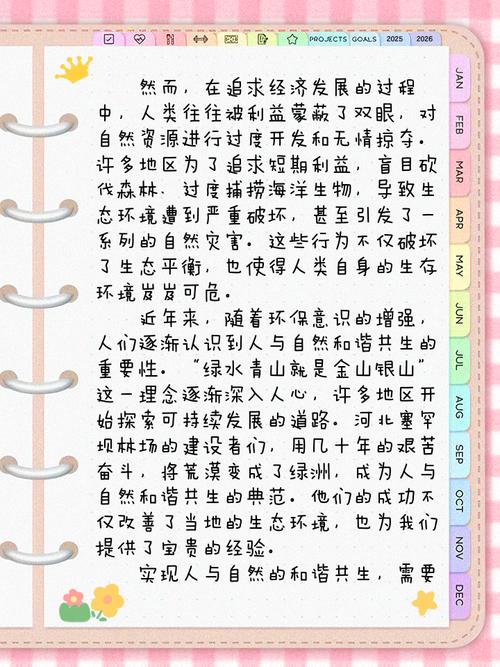 PROJECTS GOALS 2025 2026
然而，在追求经济发展的过程
中，人类往往被利益蒙蔽了双眼，对
自然资源进行过度开发和无情掠夺。
许多地区为了追求短期利益，盲目砍
伐森林、过度捕捞海洋生物，导致生
态环境遭到严重破坏，甚至引发了一
系列的自然灾害。这些行为不仅破坏
了生态平衡，也使得人类自身的生存
环境岌岌可危。
近年来，随着环保意识的增强，
人们逐渐认识到人与自然和谐共生的
重要性。“绿水青山就是金山银山”
这一理念逐渐深入人心，许多地区开
始探索可持续发展的道路。河北塞罕
坝林场的建设者们，用几十年的艰苦
奋斗，将荒漠变成了绿洲，成为人与
自然和谐共生的典范。他们的成功不
仅改善了当地的生态环境，也为我们
提供了宝贵的经验。
实现人与自然的和谐共生，需要
JAN
FEB
MAR
APR
MAY
JUN
JUL
AUG
SEP
OCT
NOV
DEC